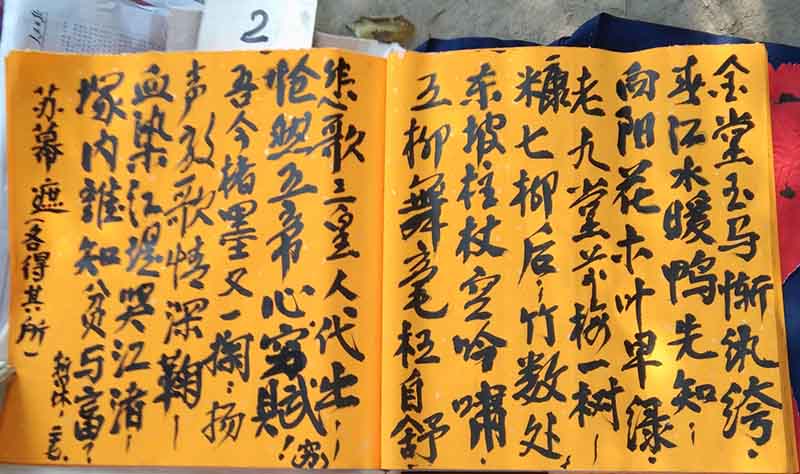 金堂玉马惭纨绔。
春江水暖鸭先知~
向阳花木叶早渌.
老九堂前梅一树~
糠七柳后、竹数处
东坡拄杖空吟啸.
五柳舞毫枉自舒
悲歌三皇人代出~
怆然五帝心窮赋!(穷)
吾今楮墨又一掬:扬
声放歌情深鞠~
血染江堤哭江渚~
塚内誰知贫与富?
苏幕遮(各得其所)
2